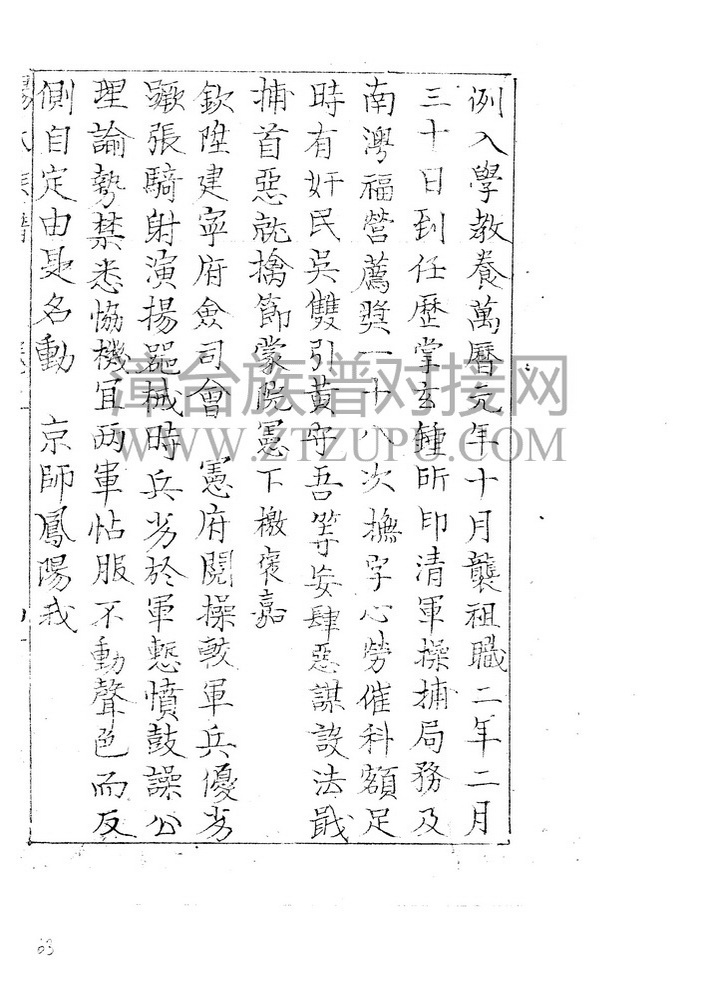 例入學教養萬曆元年十月襲祖職二年二月
三十日到任歷掌玄鍾所印清軍操捕局務及
南灣福營薦獎一十八次撫字心勞催科額足
時有奸民吳雙引黃守吾等妄肆惡謀設法戢
捕首惡就擒節蒙院憲下檄褒嘉
欽陞建寧府僉司會 憲府閱操較軍兵優劣
蹶張騎射演揚器械時兵劣於軍慙憤鼓譟公
理論勢禁悉協機宜两軍帖服不動聲色而反
側自定由是名動 京師鳳陽我
族譜
漳台族谱对接网
WWW.ZTZUPU.COM
63